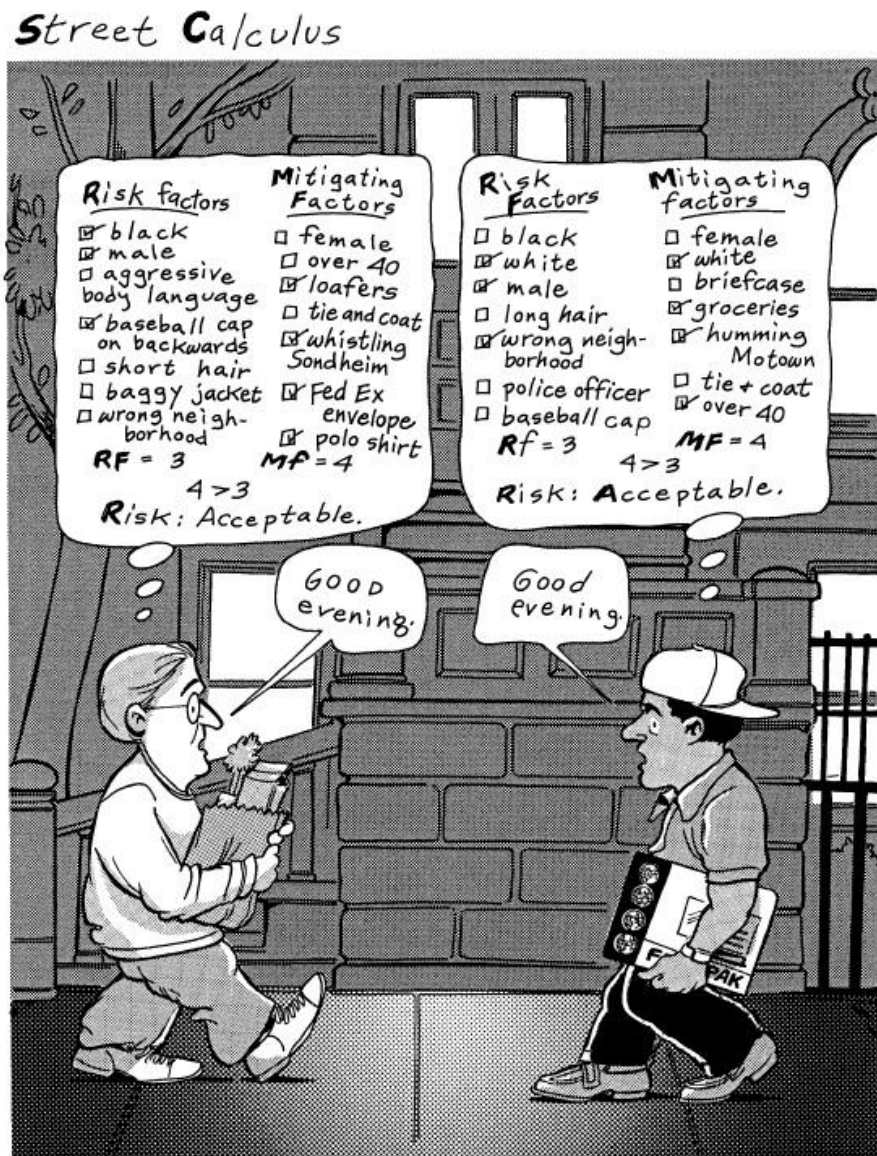 Street Calculus
Risk factors
☑ black
☑ male
☐ aggressive
body language
☑ baseball cap
on backwards
☐ short hair
☐ baggy jacket
☐ wrong neigh-
borhood
RF = 3
Mitigating
Factors
☐ female
☐ over 40
☑ loafers
☐ tie and coat
☑ whistling
Sondheim
☑ Fed Ex
envelope
☑ polo shirt
Mf = 4
4 > 3
Risk: Acceptable.
Risk
Factors
☐ black
☑ white
☑ male
☐ long hair
☑ wrong neigh-
borhood
☐ police officer
☐ baseball cap
Rf = 3
Mitigating
factors
☐ female
☑ white
☐ briefcase
☑ groceries
☑ humming
Motown
☐ tie + coat
☑ over 40
MF = 4
4 > 3
Risk: Acceptable.
GOOD
evening.
Good
evening.
F
PAK